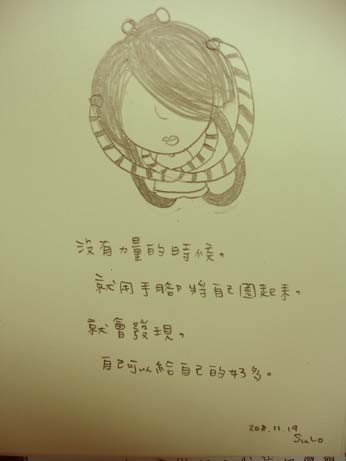 沒有力量的時候。
就用手腳將自己圈起來。
就會發現。
自己可以給自己的好多。
208.11.19
Sulo